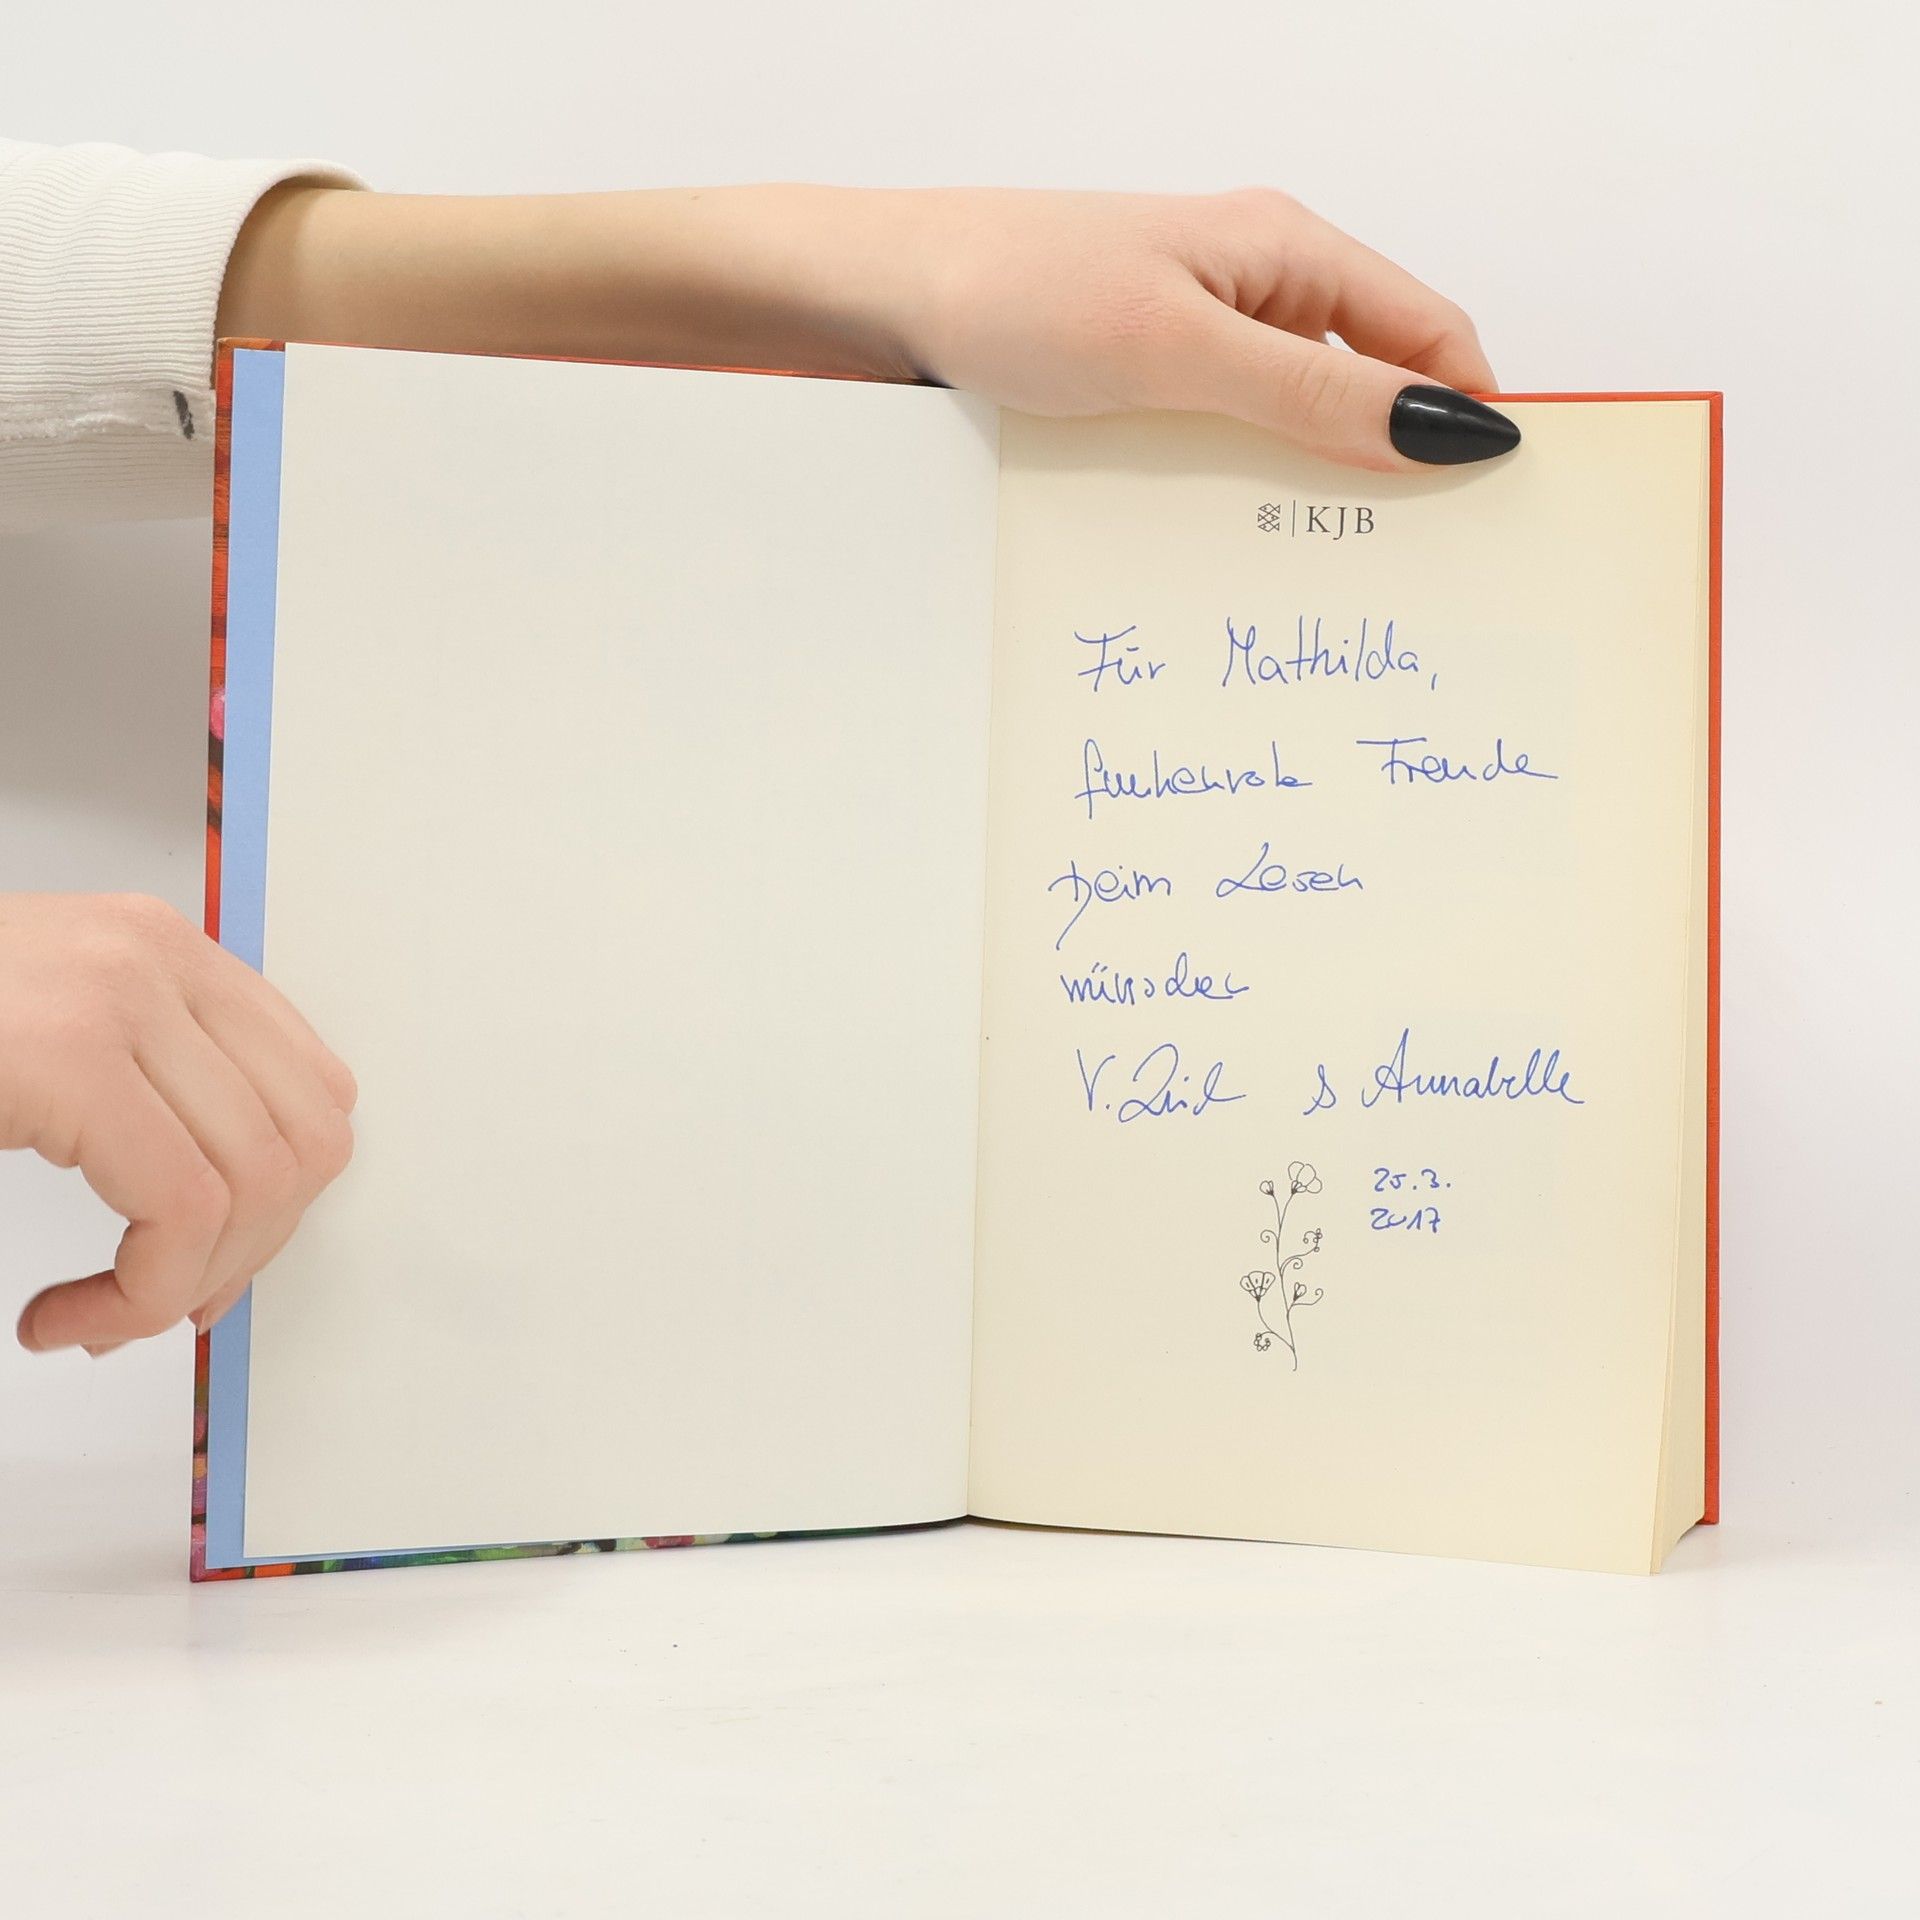 KJB
Für Mathilda,
funkenrote Freude
beim Lesen
wünschen
V. Zeid & Annabelle
25.3.
2017